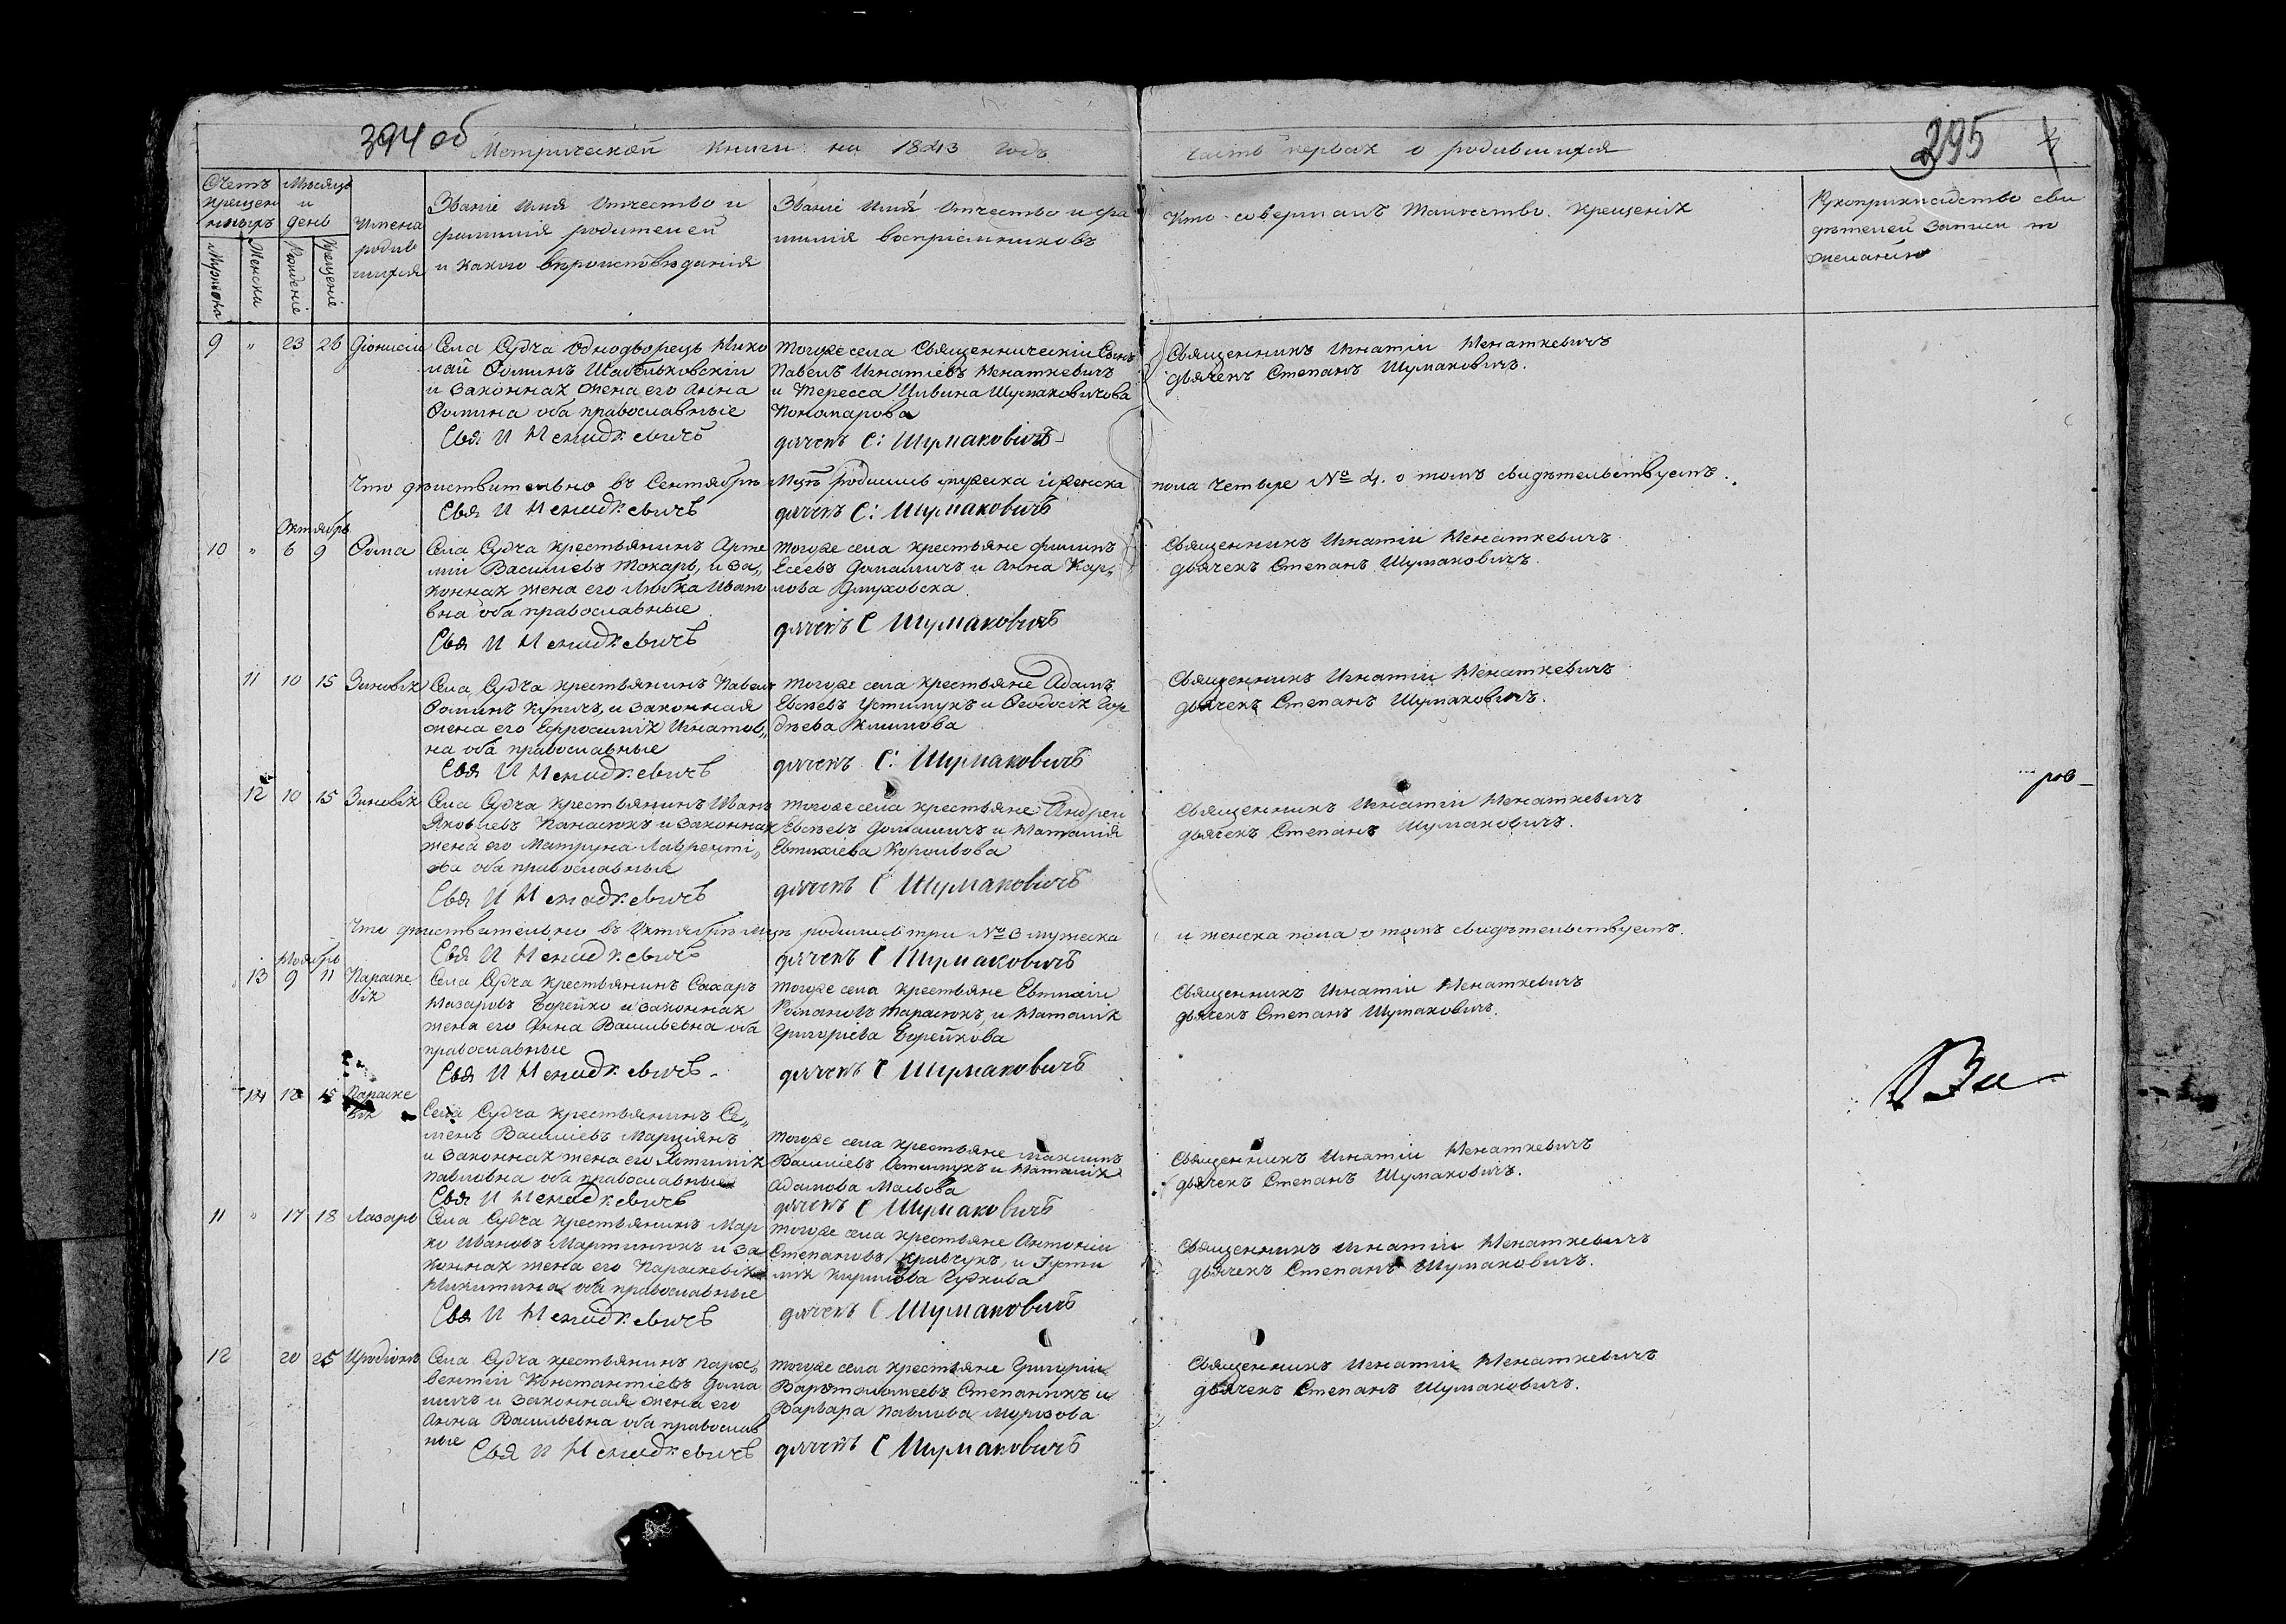 394 об
Метрической книги на 1843 годъ
часть первая о родившихся
395
Счетъ крещенныхъ
Мужска
Женска
Мѣсяцъ и день
Рожденіе
Крещеніе
Имена родившихся
Званіе имя отчество и
фамилія родителей
и какого вѣроисповѣданія
Званіе имя отчество и фа
милія воспріемниковъ
Кто совершалъ таинство крещенія
Рукоприкладство сви
дѣтелей записи по
желанію
9 " 23 26 Діонисій
Села Судча однодворецъ Нико
лай Ѳоминъ
и законная жена его Анна
Ѳомина оба православные
Свя И Ненадкевичъ
Тогоже села священническій сынъ
Павелъ Игнатіевъ Ненаткевичъ
и Тересса Шумаковичова
Пономарова
дячекъ С: Шумаковичъ
Священникъ Игнатій Ненаткевичъ
дьячекъ Степанъ Шумаковичъ.
Что дѣиствительно въ Сентябрѣ Мцѣ родилось мужеска и женска
пола четыре № 4. о томъ свидѣтельствуемъ.
Свя И Ненадкевичъ
дячекъ С: Шумаковичъ
Октябрь
10 " 6 9 Ѳома
Села Судча крестьянинъ Арте
мій Василіевъ Токарь, и за„
конная жена его Любка Ивано
вна оба православные
Свя И Ненадкевичъ
Тогоже села крестьяне Филипъ
Есеевъ Домашичъ и Анна Кар„
пова
дячекъ С Шумаковичъ
Священникъ Игнатій Ненаткевичъ
дьячекъ Степанъ Шумаковичъ.
11 10 15 Зиновія
Села Судча крестьянинъ Павелъ
Ѳоминъ Купичъ, и законная
жена его Ефросинія Игнатов„
на оба православные
Свя И Ненадкевичъ
Тогоже села крестьяне Адамъ
Евсѣевъ Устимукъ и Ѳеодосія Гор
дѣева Климова
дячекъ С: Шумаковичъ
Священникъ Игнатій Ненаткевичъ
дьячекъ Степанъ Шумаковичъ.
12 10 15 Зиновія
Села Судча крестьянинъ Иванъ
Яковлевъ Панасюкъ и законная
жена его Матруна Лавренті„
ева оба православные
Свя И Ненадкевичъ
Тогоже села крестьяне Андрей
Евсѣевъ Домашичъ и Наталія
Евтихіева
дячекъ С Шумаковичъ
Священникъ Игнатій Ненаткевичъ
дьячекъ Степанъ Шумаковичъ.
Что дѣиствительно въ Октябрѣ Мцѣ родилось три № 3 мужеска
и женска пола о томъ свидѣтельствуемъ.
Свя И Ненадкевичъ
дячекъ С Шумаковичъ
Ноябрь
13 9 11 Параске
вія
Села Судча крестьянинъ Сахаръ
Назаровъ Борейко и законная
жена его Анна Васильевна оба
православные
Свя И Ненадкевичъ
Тогоже села крестьяне
Романовъ Тарасюкъ, и Наталія
Григоріева Борейкова
дячекъ С Шумаковичъ
Священникъ Игнатій Ненаткевичъ
дьячекъ Степанъ Шумаковичъ.
14 12 15 Параске
вія
Села Судча крестьянинъ Се„
менъ Василіевъ
и законная жена его
Павловна оба православные
Свя И Ненадкевичъ
Тогоже села крестьяне Максимъ
Василіевъ и Наталія
Адамова
дячекъ С Шумаковичъ
Священникъ Игнатій Ненаткевичъ
дьячекъ Степанъ Шумаковичъ.
11 " 17 18 Лазарь
Села Судча крестьянинъ Мар
ко Ивановъ Мартинюкъ и за
конная жена его Параскевія
Никитина оба православные
Свя И Ненадкевичъ
Тогоже села крестьяне Антоній
Степановъ Кравчукъ, и Густи
нія Кирилова
дячекъ С Шумаковичъ
Священникъ Игнатій Ненаткевичъ
дьячекъ Степанъ Шумаковичъ.
12 20 25 Иродіонъ
Села Судча крестьянинъ Парх„
вентій Константіевъ Дома
шичъ и законная жена его
Анна Васильевна оба православ
ные
Свя И Ненадкевичъ
Тогоже села крестьяне Григорій
Варѳоломеевъ Степанюкъ и
Варвара Павлова
дячекъ С Шумаковичъ
Священникъ Игнатій Ненаткевичъ
дьячекъ Степанъ Шумаковичъ.